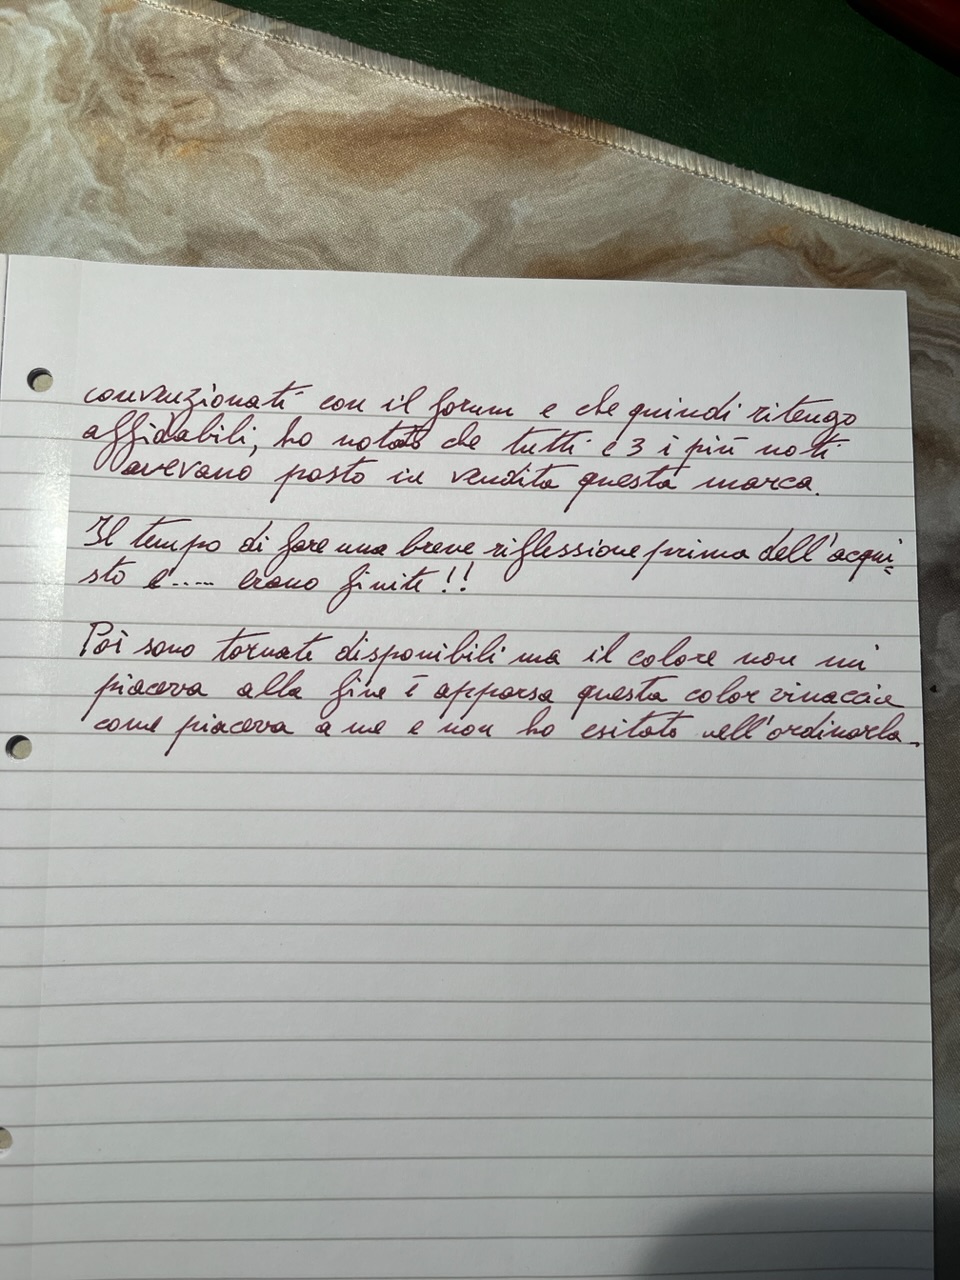 convenzionati con il forum e che quindi ritengo
affidabili, ho notato che tutti e 3 i più noti
avevano posto in vendita questa marca.
Il tempo di fare una breve riflessione prima dell'acqui=
sto e.... erano finite!!
Poi sono tornate disponibili ma il colore non mi
piaceva alla fine è apparsa questa color vinaccia
come piaceva a me e non ho esitato nell'ordinarla.